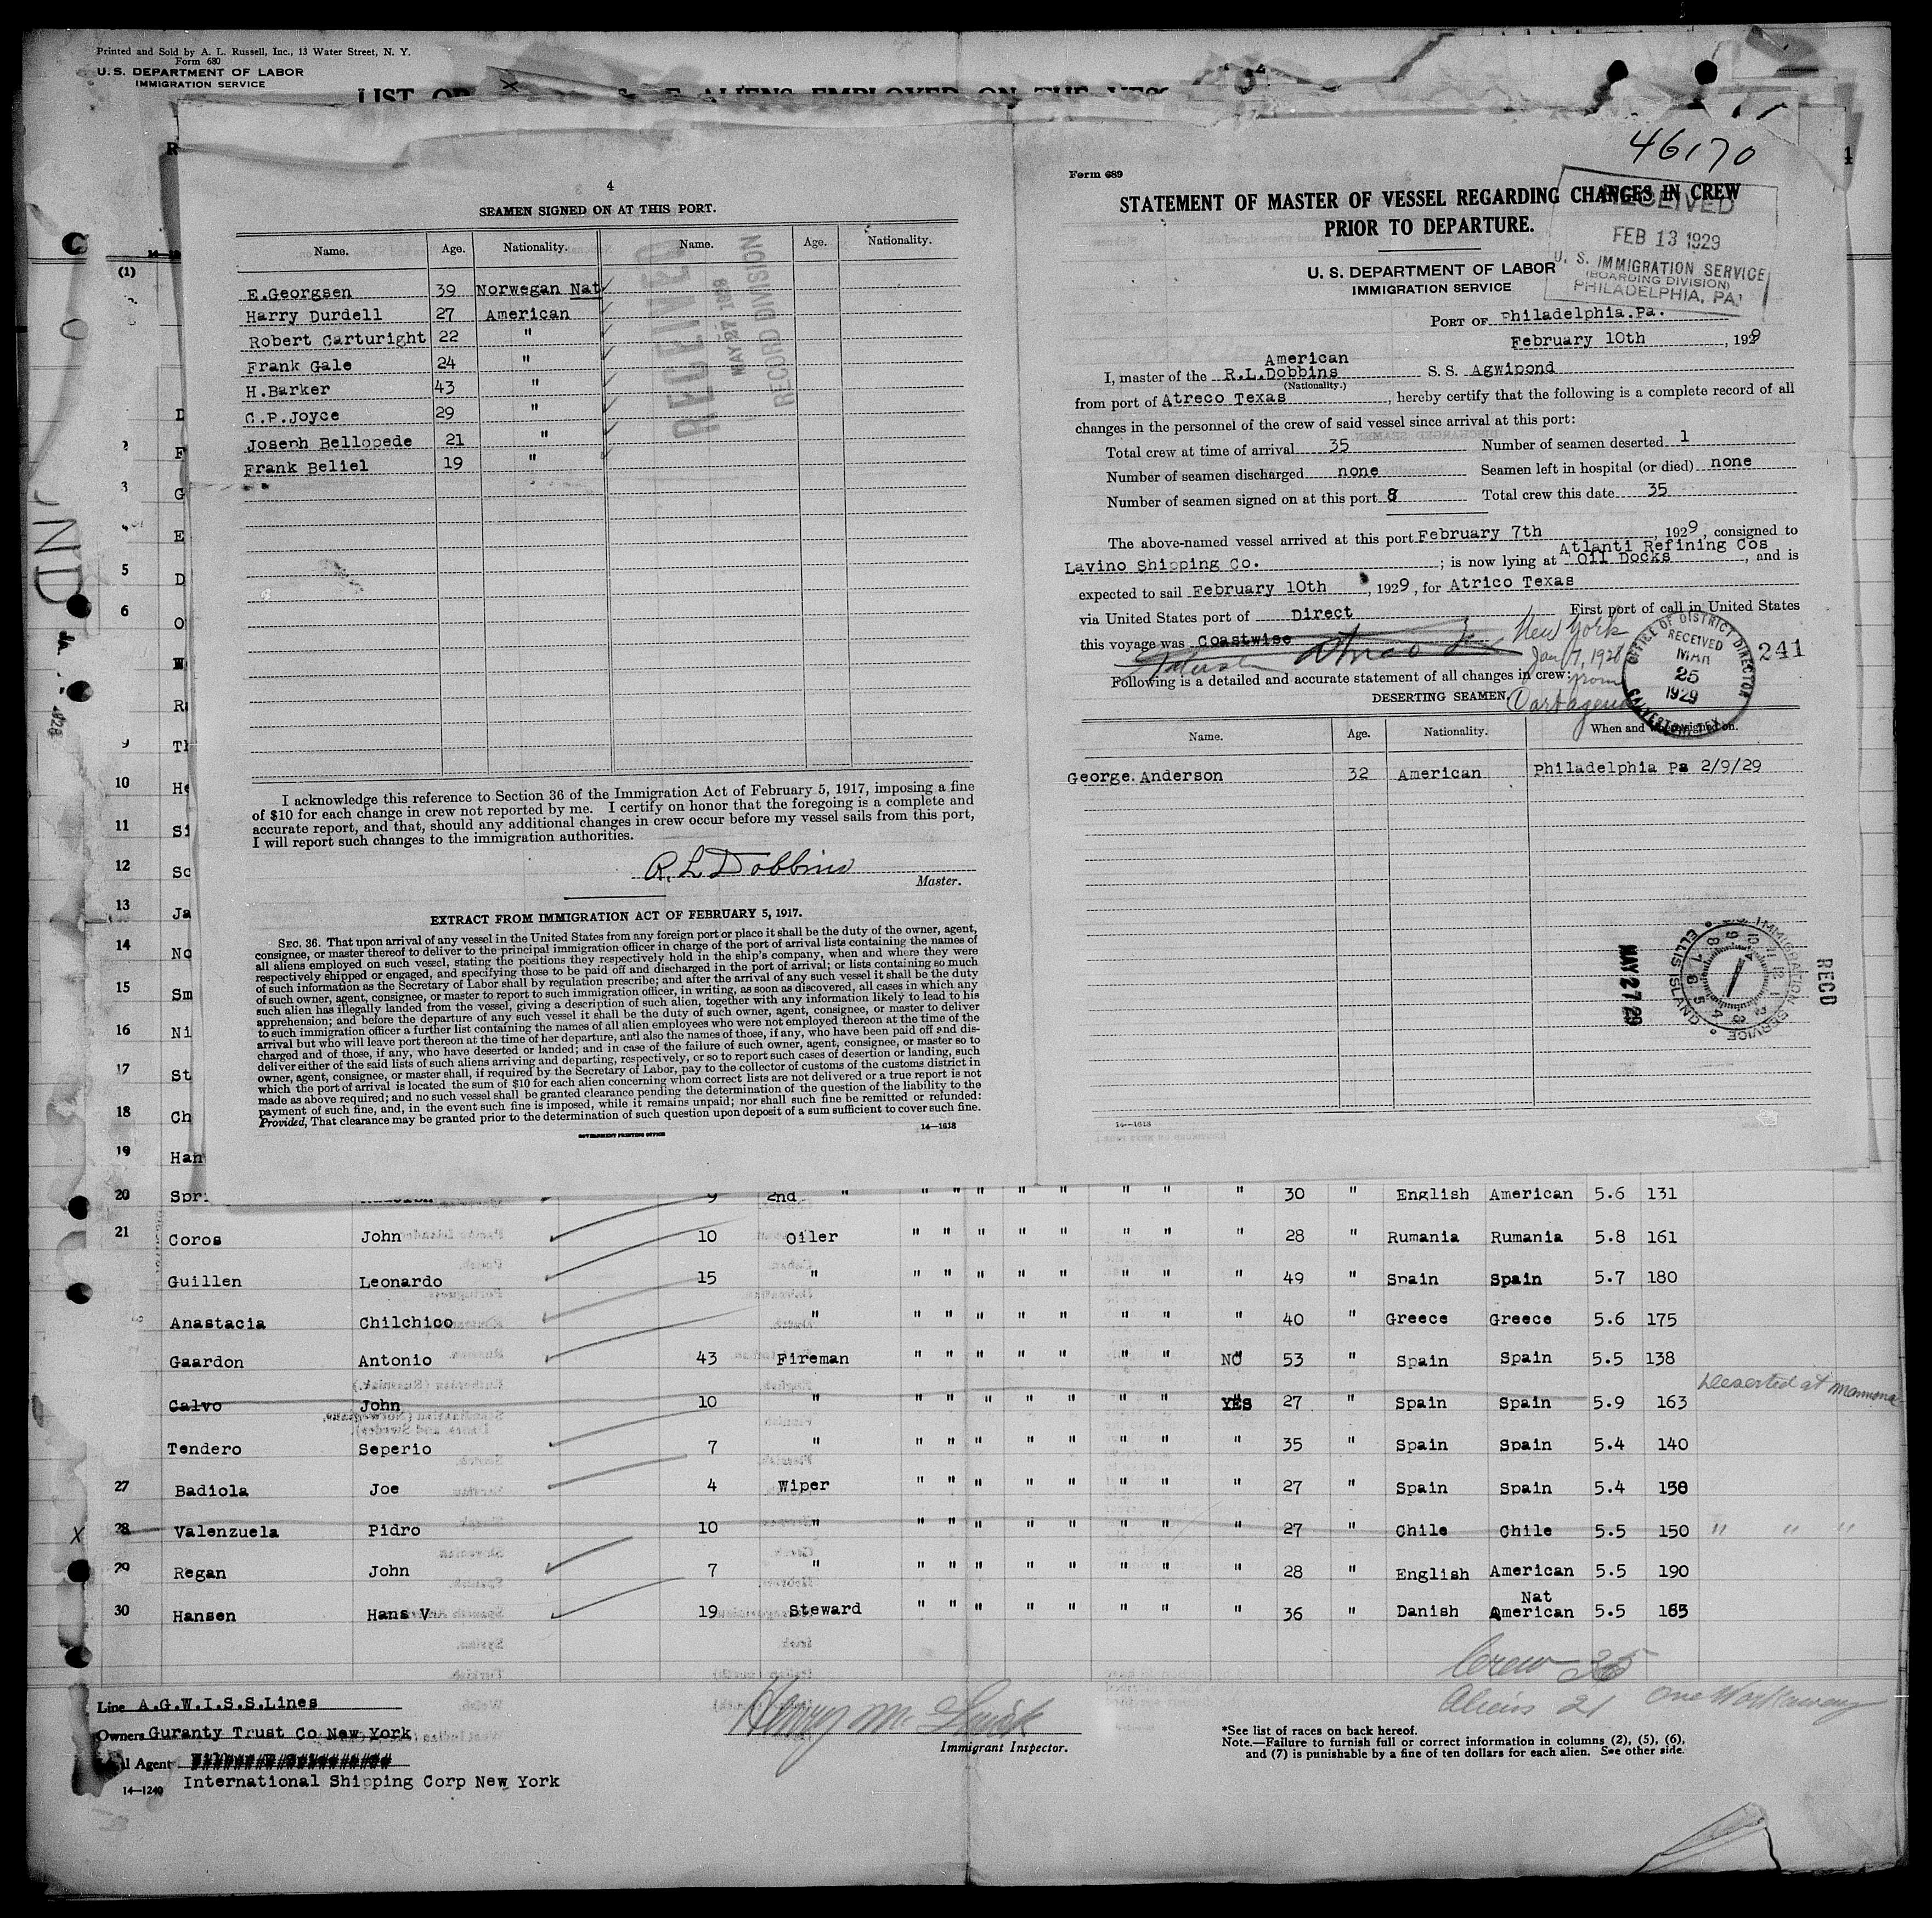 Printed and Sold by A. L. Russell, Inc., 13 Water Street, N. Y.
Form 680
U. S. DEPARTMENT OF LABOR
IMMIGRATION SERVICE
LIST OR ALIENS EMPLOYED ON THE
4
SEAMEN SIGNED ON AT THIS PORT.
Name. Age. Nationality. Name. Age. Nationality.
E.Georgsen 39 Norwegan Nat
Harry Durdell 27 American
Robert Carturight 22 "
Frank Gale 24 "
H.Barker 43 "
C.P.Joyce 29 "
Joseph Bellopede 21 "
Frank Beliel 19 "
RECEIVED
RECORD DIVISION
I acknowledge this reference to Section 36 of the Immigration Act of February 5, 1917, imposing a fine
of $10 for each change in crew not reported by me. I certify on honor that the foregoing is a complete and
accurate report, and that, should any additional changes in crew occur before my vessel sails from this port,
I will report such changes to the immigration authorities.
R. L Dobbins
Master.
EXTRACT FROM IMMIGRATION ACT OF FEBRUARY 5, 1917.
SEC. 36. That upon arrival of any vessel in the United States from any foreign port or place it shall be the duty of the owner, agent,
consignee, or master thereof to deliver to the principal immigration officer in charge of the port of arrival lists containing the names of
all aliens employed on such vessel, stating the positions they respectively hold in the ship's company, when and where they were
respectively shipped or engaged, and specifying those to be paid off and discharged in the port of arrival; or lists containing so much
of such information as the Secretary of Labor shall by regulation prescribe; and after the arrival of any such vessel it shall be the duty
of such owner, agent, consignee, or master to report to such immigration officer, in writing, as soon as discovered, all cases in which any
such alien has illegally landed from the vessel, giving a description of such alien, together with any information likely to lead to his
apprehension; and before the departure of any such vessel it shall be the duty of such owner, agent, consignee, or master to deliver
to such immigration officer a further list containing the names of all alien employees who were not employed thereon at the time of the
arrival but who will leave port thereon at the time of her departure, and also the names of those, if any, who have been paid off and dis-
charged and of those, if any, who have deserted or landed; and in case of the failure of such owner, agent, consignee, or master so to
deliver either of the said lists of such aliens arriving and departing, respectively, or so to report such cases of desertion or landing, such
owner, agent, consignee, or master shall, if required by the Secretary of Labor, pay to the collector of customs of the customs district in
which the port of arrival is located the sum of $10 for each alien concerning whom correct lists are not delivered or a true report is not
made as above required; and no such vessel shall be granted clearance pending the determination of the question of the liability to the
payment of such fine, and, in the event such fine is imposed, while it remains unpaid; nor shall such fine be remitted or refunded:
Provided, That clearance may be granted prior to the determination of such question upon deposit of a sum sufficient to cover such fine.
GOVERNMENT PRINTING OFFICE 14—1618
46170
Form 689
STATEMENT OF MASTER OF VESSEL REGARDING CHANGES IN CREW
PRIOR TO DEPARTURE.
RECEIVED
FEB 13 1929
U. S. IMMIGRATION SERVICE
(BOARDING DIVISION)
PHILADELPHIA, PA.
U. S. DEPARTMENT OF LABOR
IMMIGRATION SERVICE
PORT OF Philadelphia.Pa.
February 10th, 1929
American
I, master of the R.L.Dobbins S. S. Agwipond
(Nationality.)
from port of Atreco Texas, hereby certify that the following is a complete record of all
changes in the personnel of the crew of said vessel since arrival at this port:
Total crew at time of arrival 35 Number of seamen deserted 1
Number of seamen discharged none Seamen left in hospital (or died) none
Number of seamen signed on at this port 8 Total crew this date 35
The above-named vessel arrived at this port February 7th, 1929, consigned to
Atlanti Refining Cos
Lavino Shipping Co.; is now lying at Oil Docks, and is
expected to sail February 10th, 1929, for Atrico Texas
via United States port of Direct First port of call in United States
this voyage was Coastwise Atreco New York
Jan 7, 1928
from
Cartagena
OFFICE OF DISTRICT DIRECTOR
RECEIVED
MAR
25
1929
GALVESTON, TEX.
241
Following is a detailed and accurate statement of all changes in crew:
DESERTING SEAMEN.
Name. Age. Nationality. When and where signed on.
George.Anderson 32 American Philadelphia Pa 2/9/29
RECD
MAY 27 29
IMMIGRATION SERVICE ELLIS ISLAND
14—1618
(1)
D
2 F
3 G
E
5 D
6 O
W
R
9 Th
10 He
11 Si
12 Sc
13 Ja
14 No
15 Sm
16 Ni
17 St
18 Ch
19 Han
20 Spr 9 2nd " " " " " " " " " 30 " English American 5.6 131
21 Coros John 10 Oiler " " " " " " " " 28 " Rumania Rumania 5.8 161
Guillen Leonardo 15 " " " " " " " " " 49 " Spain Spain 5.7 180
Anastacia Chilchico " " " " " " " " " 40 " Greece Greece 5.6 175
Gaardon Antonio 43 Fireman " " " " " " " NO 53 " Spain Spain 5.5 138
Calvo John 10 " " " " " " " " YES 27 " Spain Spain 5.9 163 Deserted at
Tendero Seperio 7 " " " " " " " " " 35 " Spain Spain 5.4 140
27 Badiola Joe 4 Wiper " " " " " " " " 27 " Spain Spain 5.4 150
X 28 Valenzuela Pidro 10 " " " " " " " " " 27 " Chile Chile 5.5 150 " " "
29 Regan John 7 " " " " " " " " " 28 " English American 5.5 190
Nat
30 Hansen Hans V 19 Steward " " " " " " " " 36 " Danish American 5.5 165
Crew 35
Aliens 21 One Workaway
Line A.G.W.I.S.S.Lines
Owners Guranty Trust Co New York
Agent
International Shipping Corp New York
14—1240
Henry M.
Immigrant Inspector.
*See list of races on back hereof.
Note.—Failure to furnish full or correct information in columns (2), (5), (6),
and (7) is punishable by a fine of ten dollars for each alien. See other side.